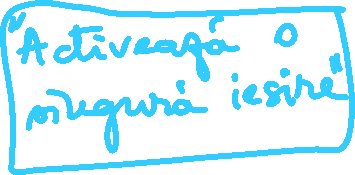 "Activează o
singură iesire"